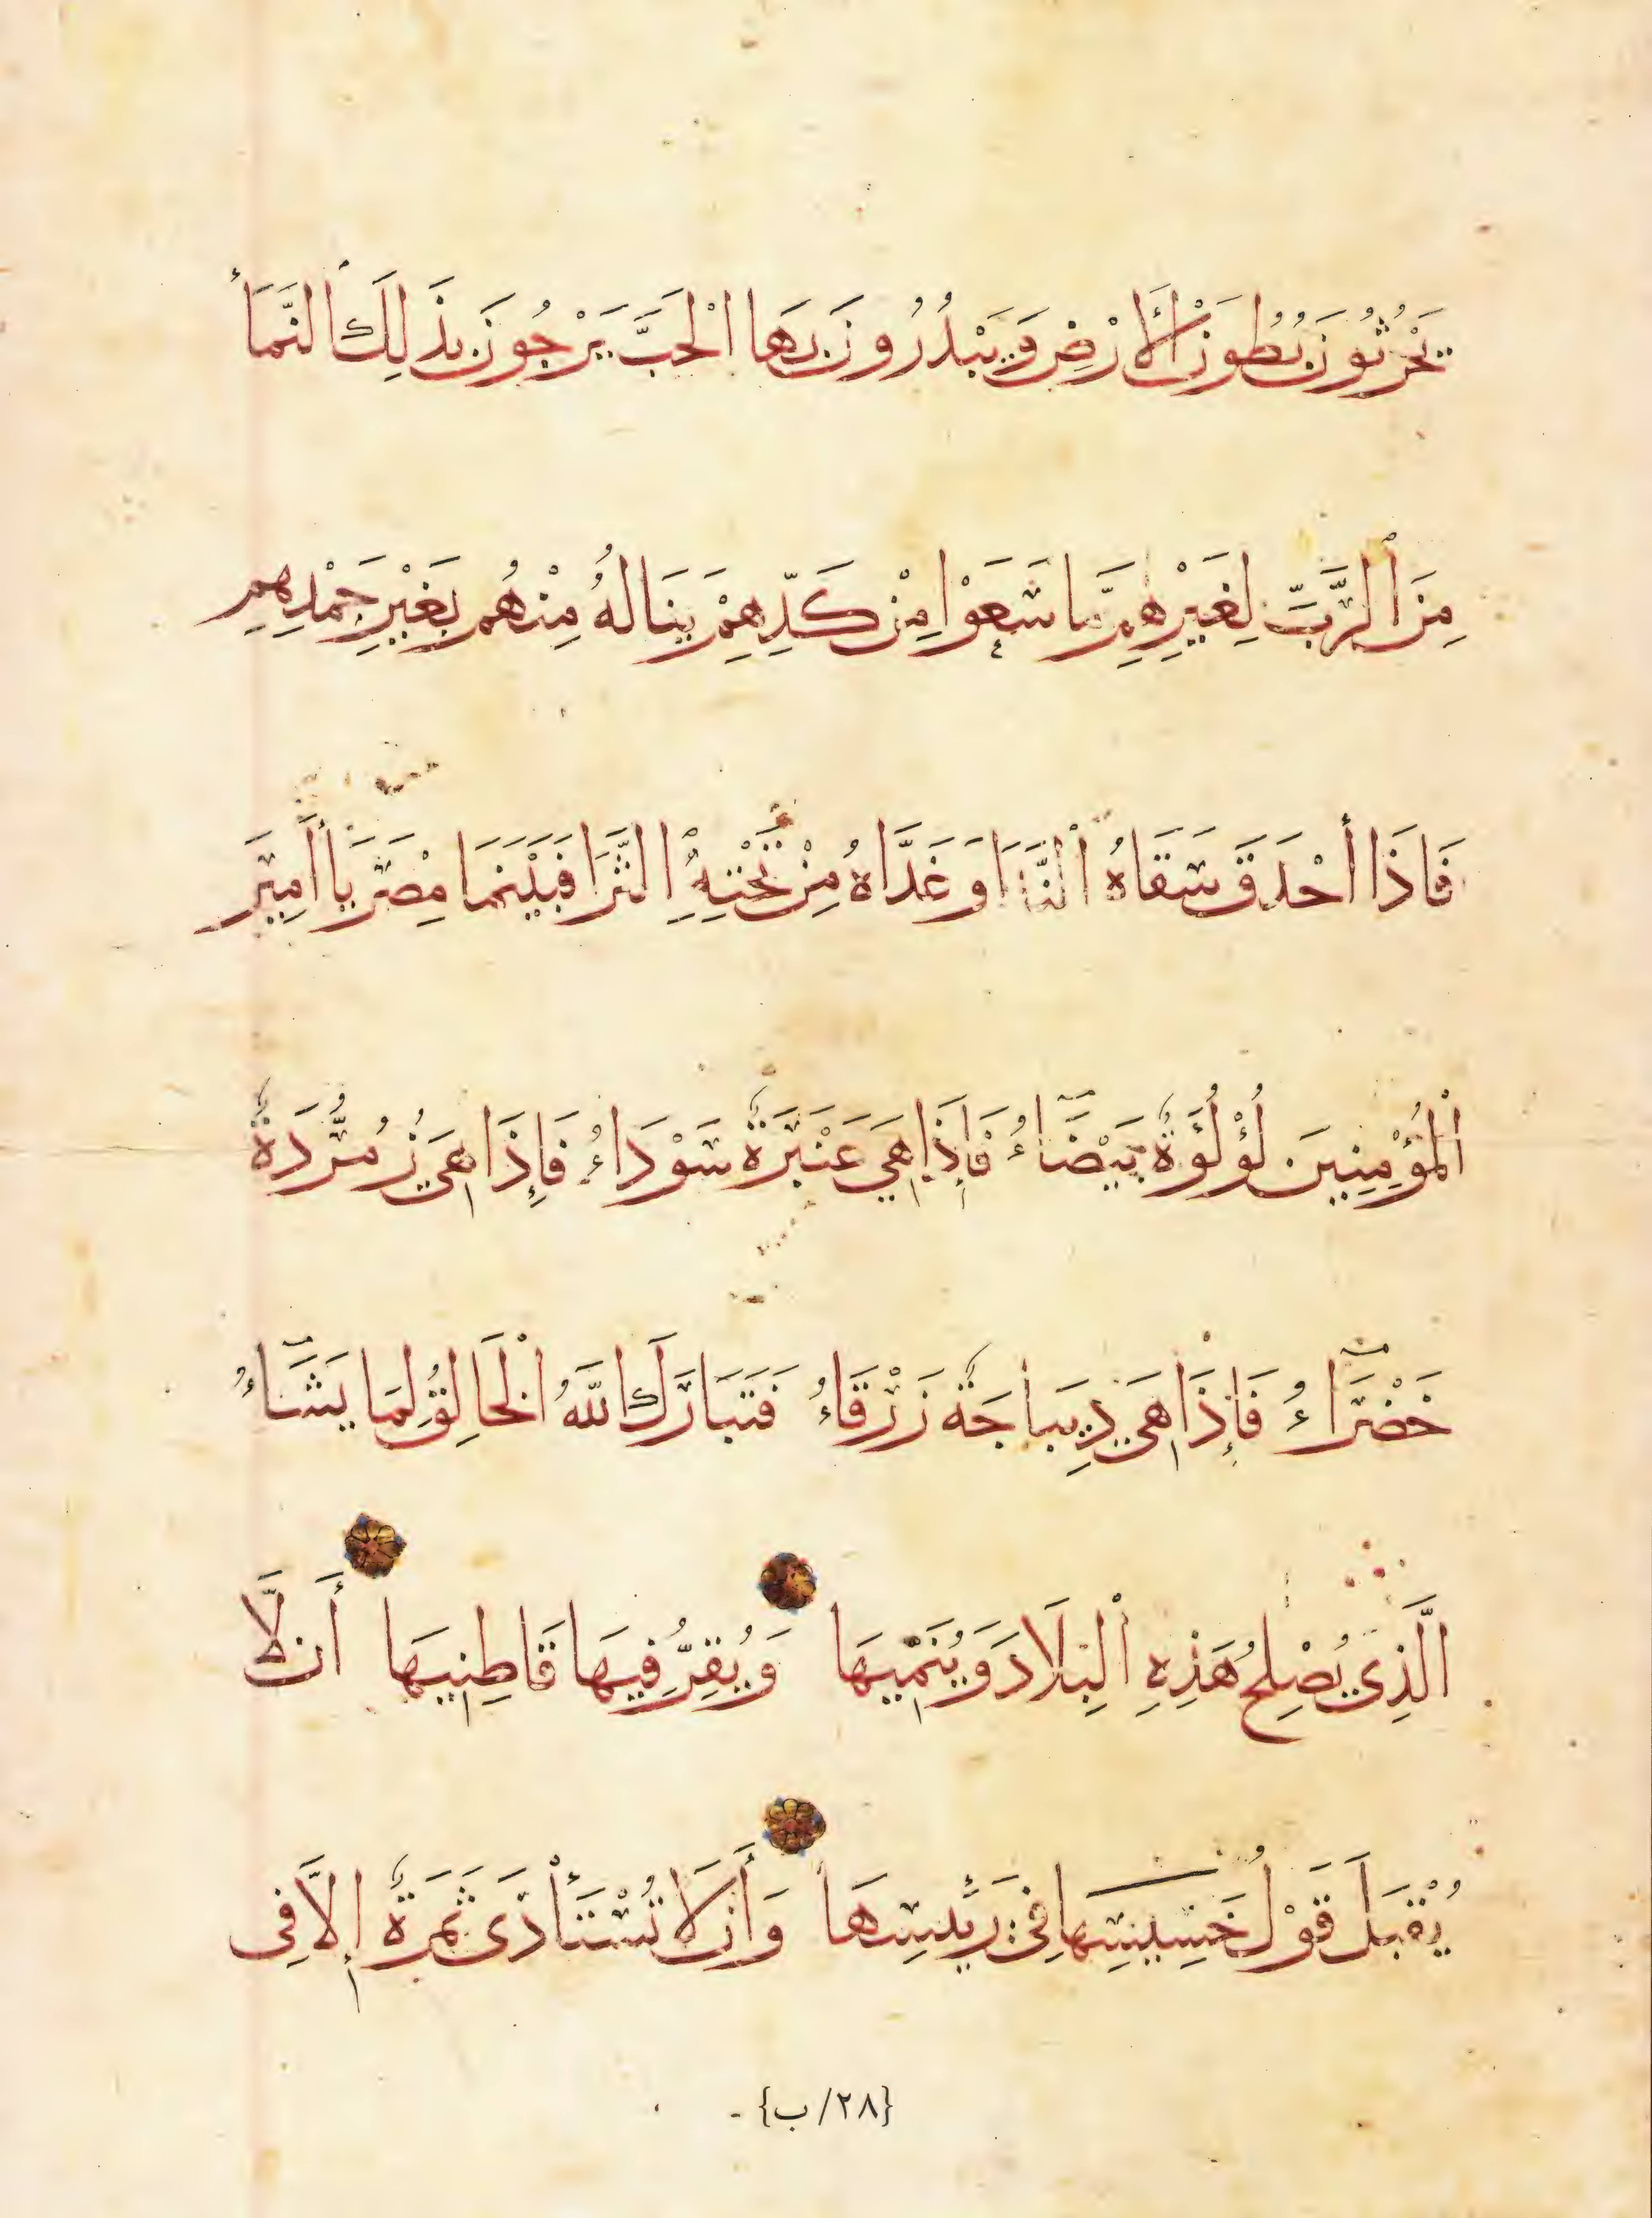 يَحْرُثُونَ بُطُونَ الْأَرْضِ وَيَبْذُرُونَ بِهَا الْحَبَّ يَرْجُونَ بِذَلِكَ النَّمَاءَ
مِنَ الرَّبِّ لِغَيْرِهِمْ مَّا سَعَوْا مِنْ كَدِّهِمْ يَنَالُهُ مِنْهُم بِغَيْرِ جَهْدِهِمِ
فَاذَا أَحْدَقَ سَقَاهُ النَّدَا وَغَذَّاهُ مِنْ تَحْتِهِ الثَّرَا فَبَيْنَمَا مِصْرُ يَا أَمِيرَ
الْمُؤْمِنِينَ لُؤْلُؤَةٌ بَيْضَاءُ فَإِذَا هِيَ عَنْبَرَةٌ سَوْدَاءُ فَإِذَا هِيَ زُمُرُّدَةٌ
خَضْرَاءُ فَإِذَا هِيَ دِيبَاجَةٌ زَرْقَاءُ فَتَبَارَكَ اللَّهُ الْخَالِقُ لِمَا يَشَاءُ
الَّذِي يُصْلِحُ هَذِهِ الْبِلَادَ وَيُنَمِّيهَا وَيُقِرُّ فِيهَا قَاطِنِيهَا أَن لَّا
يُقْبَلَ قَوْلُ خَسِيسِهَا فِي رَئِيسِهَا وَأَن لَا تُسْتَأْدَى ثَمَرَةٌ إِلَّا فِي
{٢٨/ب}